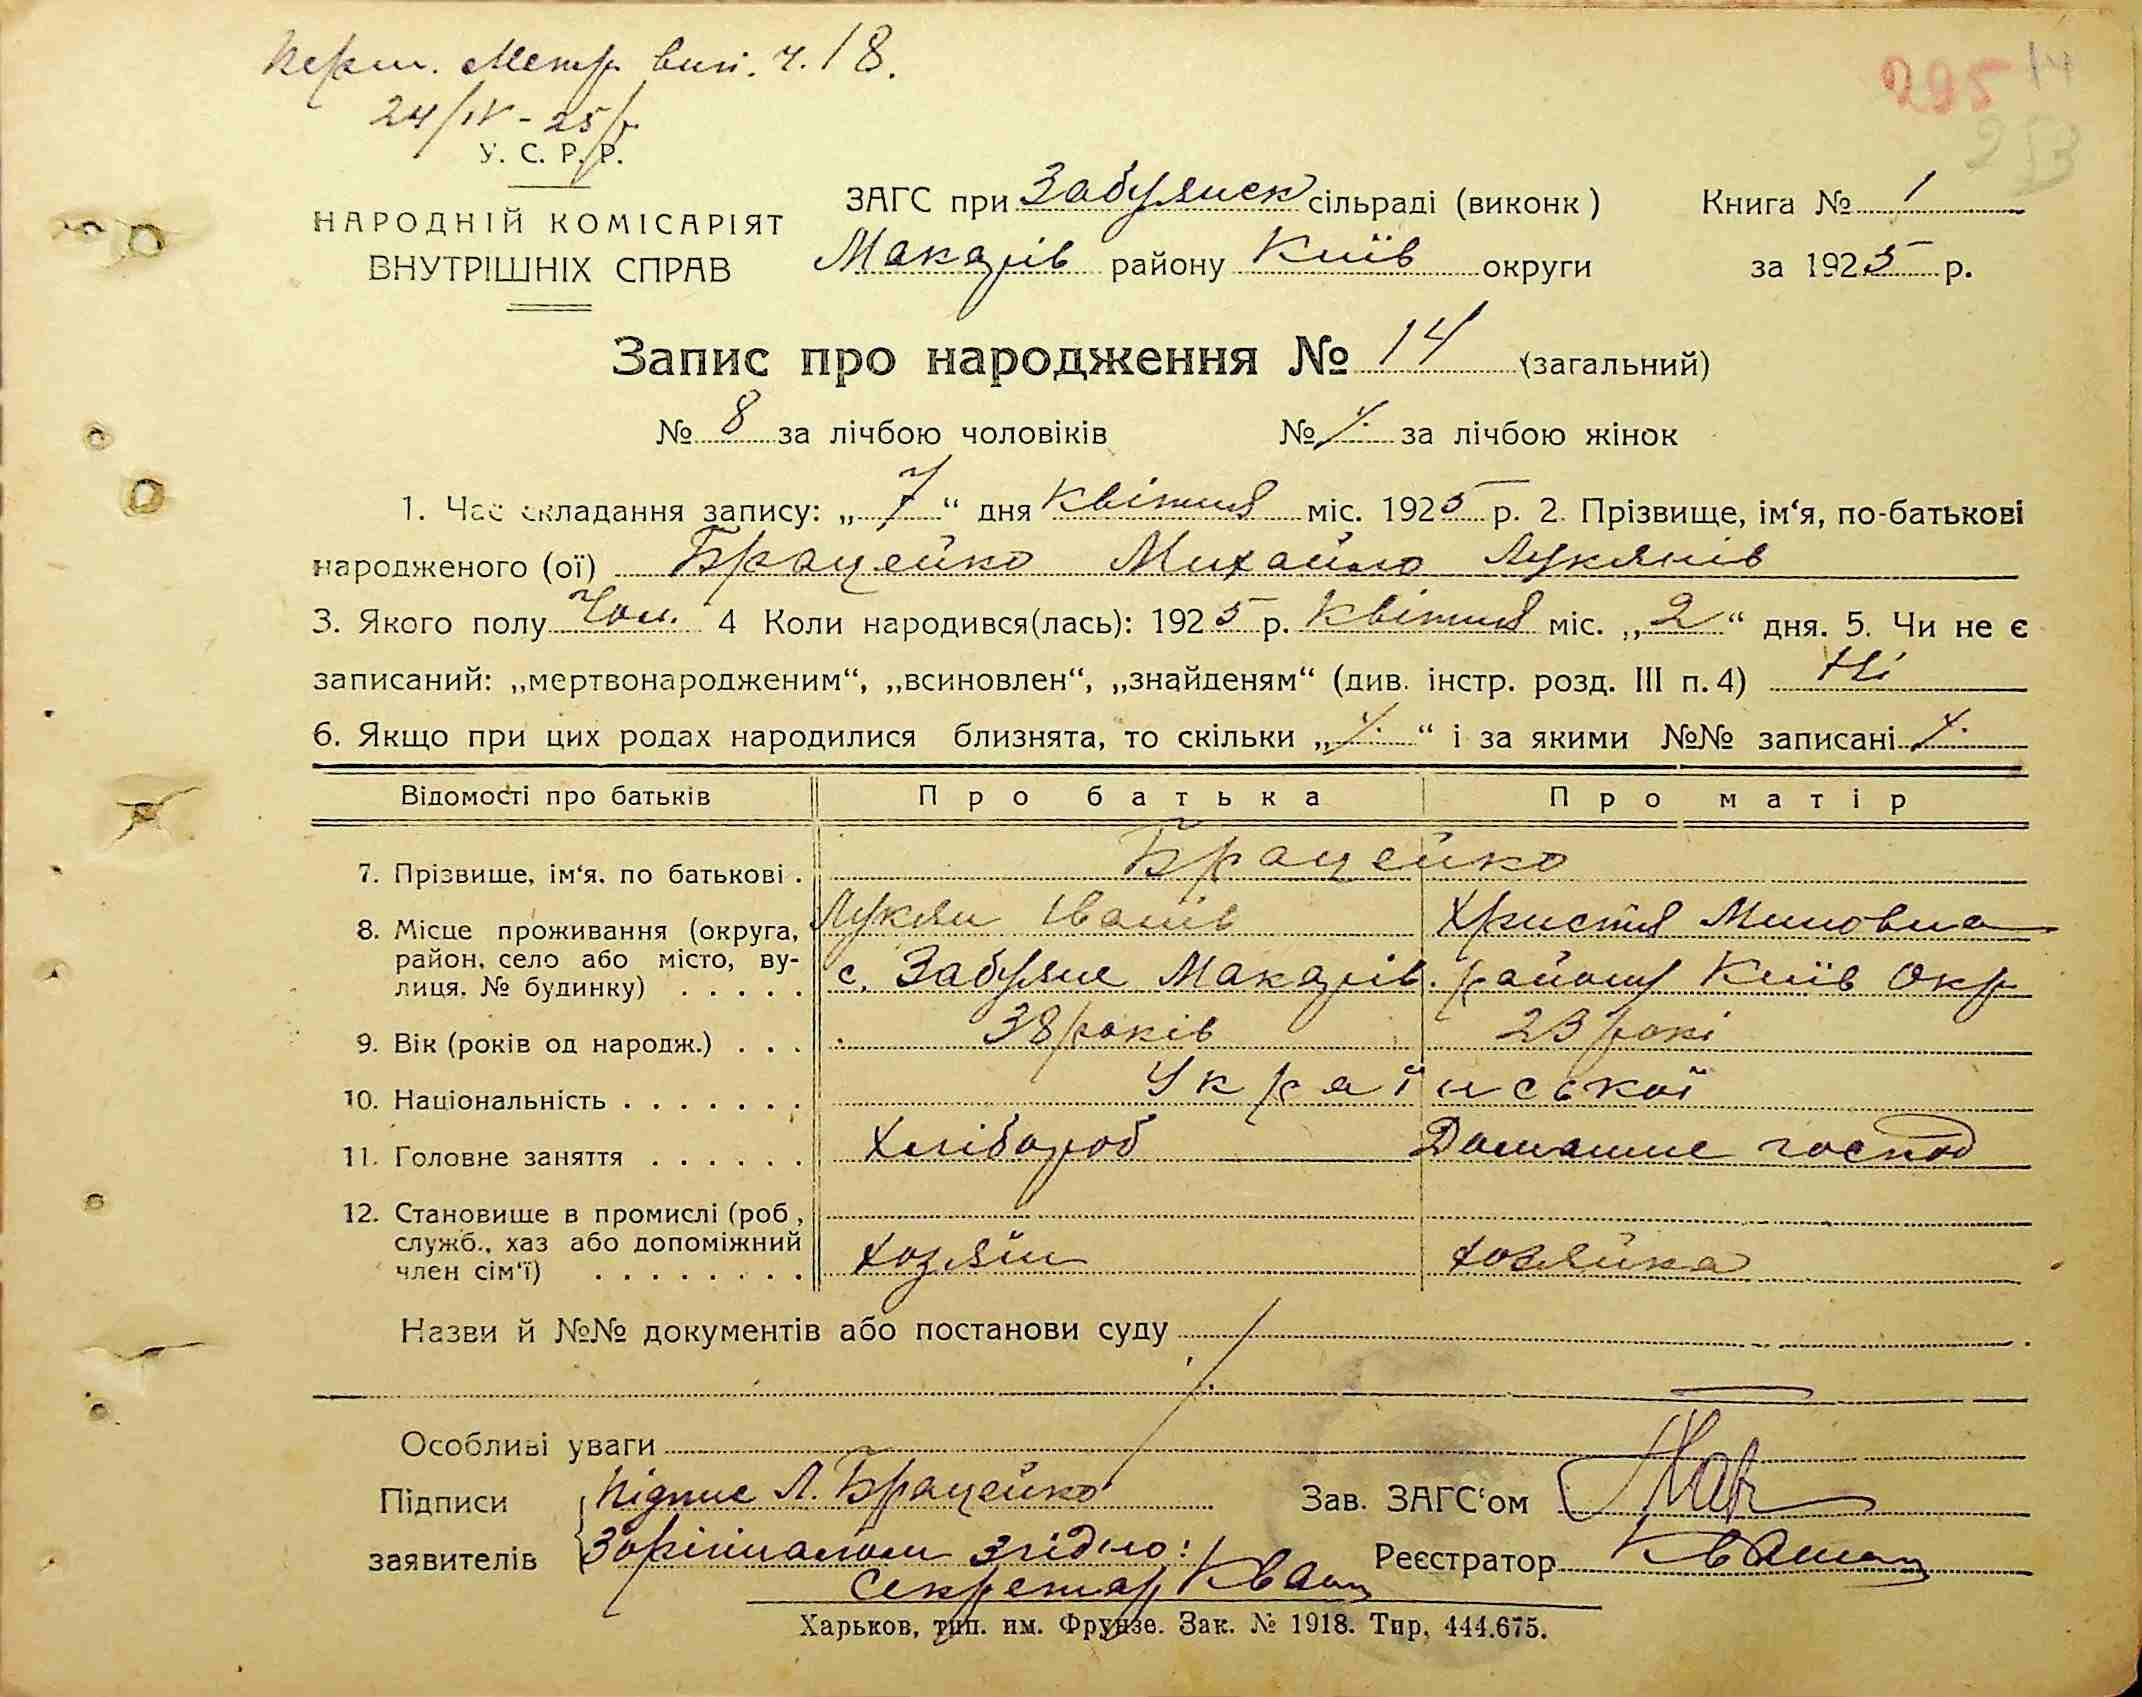 Перш. Метр. вип. ч. 18.
24/IV - 25 р.
295 14
253
У. С. Р. Р.
НАРОДНІЙ КОМІСАРІЯТ
ВНУТРІШНІХ СПРАВ
ЗАГС при Забуянск сільраді (виконк) Книга № 1
Макарів району Київ округи за 1925 р.
Запис про народження № 14 (загальний)
№ 8 за лічбою чоловіків № за лічбою жінок
1. Час складання запису: „7“ дня Квітня міс. 1925 р. 2. Прізвище, ім‘я, по-батькові
народженого (ої) Брацейко Михайло Лукянів
3. Якого полу Чол. 4 Коли народився(лась): 1925 р. Квітня міс. „2“ дня. 5. Чи не є
записаний: „мертвонародженим“, „всиновлен“, „знайденям“ (див. інстр. розд. III п. 4) Ні
6. Якщо при цих родах народилися близнята, то скільки „ “ і за якими №№ записані
Відомості про батьків Про батька Про матір
7. Прізвище, ім‘я. по батькові . Брацейко
Лукян Іванів Христя Миновна
8. Місце проживання (округа,
район, село або місто, ву-
лиця. № будинку) . . . . . с. Забуяне Макарів. району Київ Окр
9. Вік (років од народж.) . . . 38 років 23 рокі
10. Національність . . . . . . . Української
11. Головне заняття . . . . . . Хлібороб Домашне господ
12. Становище в промислі (роб,
служб., хаз або допоміжний
член сім‘ї) . . . . . . . . Хозяін Хозяйка
Назви й №№ документів або постанови суду
Особливі уваги
Підписи Підпис Л. Брацейко Зав. ЗАГС‘ом
заявителів З орігіналом згідно: Реєстратор Кваша
Секретар Кваша
Харьков, тип. им. Фрунзе. Зак. № 1918. Тир, 444.675.